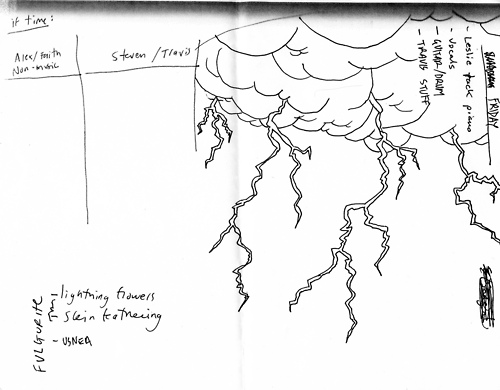 if time:
Alex/Faith
Non-music
Steven/Travis
FRIDAY
- Leslie tack piano
- vocals
- GUITAR/DRUM
- TRAVIS STUFF
FULGURITE
- lightning flowers
- skin feathering
- USNEA